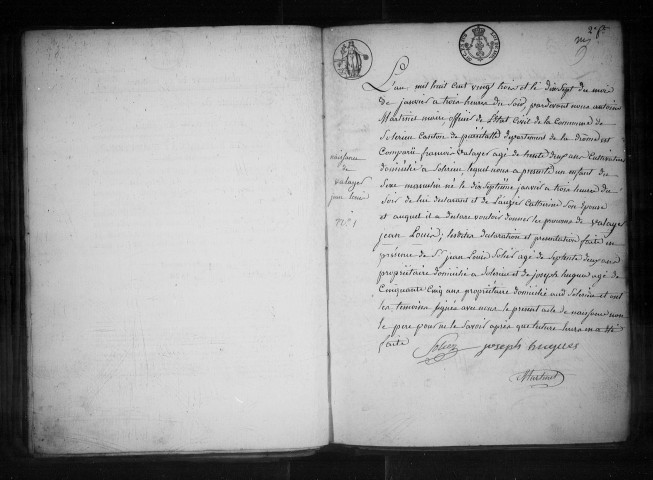 2e fet
L'an mil huit cent vingt trois et le dix sept du mois
de janvier a trois heures du Soir, pardevant nous antoine
Martinel maire, officier de l'État Civil de la Commune de
Solerieu Canton de pierrelatte département de la drôme est
Comparu francois Valayer agé de trente deux ans Cultivateur
domicilié a Solerieu lequel nous a presenté un enfant du
Sexe masculin né le dix Septieme janvier a trois heures du
Soir de lui déclarant et de Lauzier Catherine Son Epouse
et auquel il a declaré vouloir donner les prenoms de Valayer
jean Louis; lesdites declaration et presentation faite en
présence de Sr jean Louis Solier agé de Septente deux ans
propriétaire domicilié a Solerieu et de joseph hugues agé de
Cinquante Cinq ans propriétaire domicilié aud Solerieu et ont
les temoins signés avec nous le present acte de naissance non
le pere pour ne le Savoir après que lecture leur en a été
faite
naissance
de
valayer
jean louis
N° 1
Solier joseph hugues
Martinel